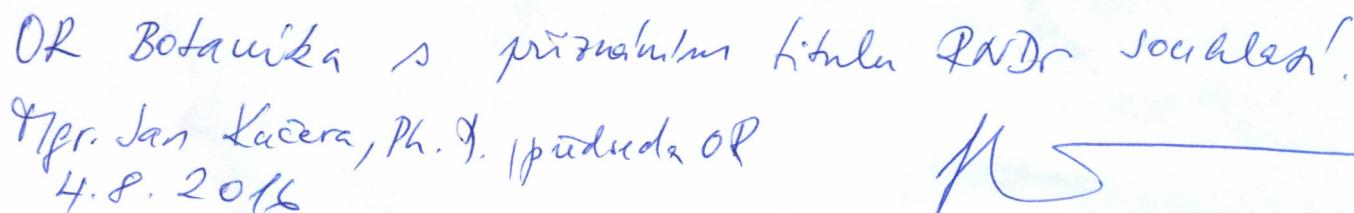 OR Botanika s přiznáním titulu RNDr souhlasí.
Mgr. Jan Kučera, Ph.D., předseda OR
4.8.2016